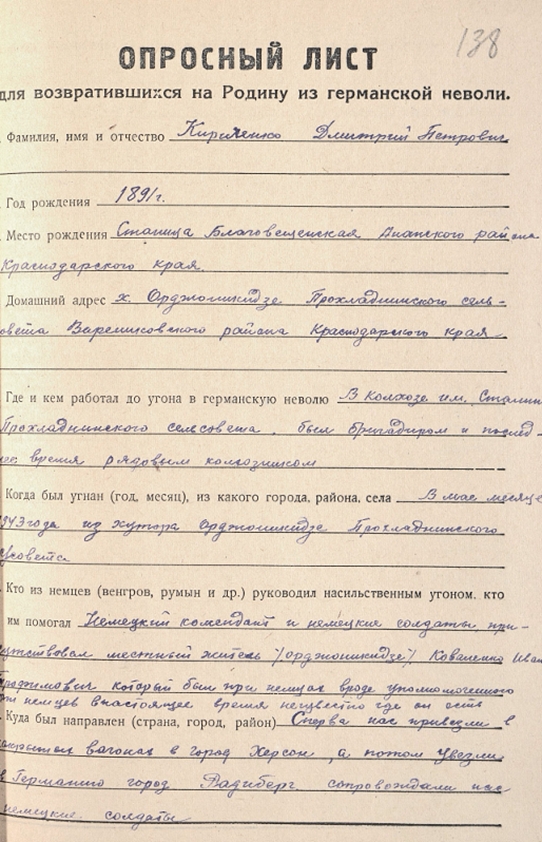 138
ОПРОСНЫЙ ЛИСТ
для возвратившихся на Родину из германской неволи.
Фамилия, имя и отчество Кириленко Дмитрий Петрович
Год рождения 1891г.
Место рождения Станица Благовещенская Анапского района
Краснодарского края.
Домашний адрес х. Орджоникидзе Прохладнинского сель-
совета Варениковского района Краснодарского края
Где и кем работал до угона в германскую неволю В Колхозе им. Сталин
Прохладнинского сельсовета, был бригадиром и послед-
нее время рядовым колхозником
Когда был угнан (год, месяц), из какого города, района, села В мае месяце
1943 года из хутора Орджоникидзе Прохладнинского
с/совета
Кто из немцев (венгров, румын и др.) руководил насильственным угоном, кто
им помогал Немецкий комендант и немецкие солдаты, при-
сутствовал местный житель /орджоникидзе/ Коваленко Иван
который был при немцах вроде уполномоченного
от немцев внастоящее время неизвестно где он есть
Куда был направлен (страна, город, район) Сперва нас привезли в
закрытых вагонах в город Херсон, а потом увезли
в Германию город Радиберг сопровождали нас
немецкие солдаты